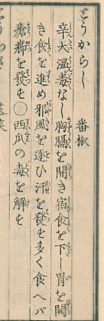 とうからし 番椒
辛大温毒なし胸膈を開き宿食を下し胃を開
き食を進め邪風を逐ひ汗を發す多く食へバ
を發す○西瓜の毒を解す